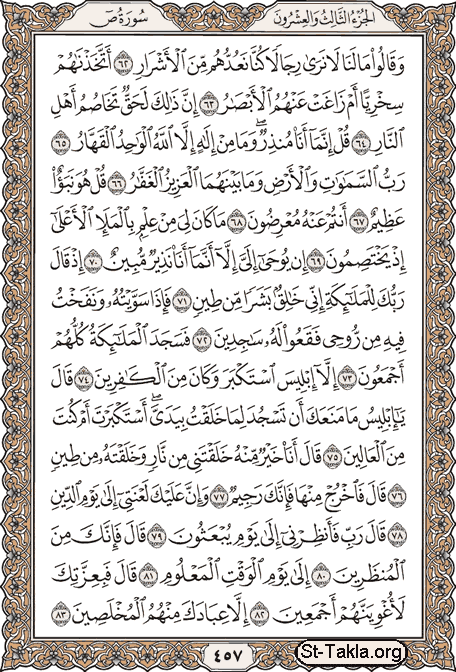 الجزء الثالث والعشرون
سورة ص
وَقَالُوا۟ مَا لَنَا لَا نَرَىٰ رِجَالًا كُنَّا نَعُدُّهُم مِّنَ ٱلْأَشْرَارِ ٦٢ أَتَّخَذْنَٰهُمْ
سِخْرِيًّا أَمْ زَاغَتْ عَنْهُمُ ٱلْأَبْصَٰرُ ٦٣ إِنَّ ذَٰلِكَ لَحَقٌّ تَخَاصُمُ أَهْلِ
ٱلنَّارِ ٦٤ قُلْ إِنَّمَآ أَنَا۠ مُنذِرٌ ۖ وَمَا مِنْ إِلَٰهٍ إِلَّا ٱللَّهُ ٱلْوَٰحِدُ ٱلْقَهَّارُ ٦٥
رَبُّ ٱلسَّمَٰوَٰتِ وَٱلْأَرْضِ وَمَا بَيْنَهُمَا ٱلْعَزِيزُ ٱلْغَفَّٰرُ ٦٦ قُلْ هُوَ نَبَؤٌا۟
عَظِيمٌ ٦٧ أَنتُمْ عَنْهُ مُعْرِضُونَ ٦٨ مَا كَانَ لِىَ مِنْ عِلْمٍۭ بِٱلْمَلَإِ ٱلْأَعْلَىٰٓ
إِذْ يَخْتَصِمُونَ ٦٩ إِن يُوحَىٰٓ إِلَىَّ إِلَّآ أَنَّمَآ أَنَا۠ نَذِيرٌ مُّبِينٌ ٧٠ إِذْ قَالَ
رَبُّكَ لِلْمَلَٰٓئِكَةِ إِنِّى خَٰلِقٌۢ بَشَرًا مِّن طِينٍ ٧١ فَإِذَا سَوَّيْتُهُۥ وَنَفَخْتُ
فِيهِ مِن رُّوحِى فَقَعُوا۟ لَهُۥ سَٰجِدِينَ ٧٢ فَسَجَدَ ٱلْمَلَٰٓئِكَةُ كُلُّهُمْ
أَجْمَعُونَ ٧٣ إِلَّآ إِبْلِيسَ ٱسْتَكْبَرَ وَكَانَ مِنَ ٱلْكَٰفِرِينَ ٧٤ قَالَ
يَٰٓإِبْلِيسُ مَا مَنَعَكَ أَن تَسْجُدَ لِمَا خَلَقْتُ بِيَدَىَّ ۖ أَسْتَكْبَرْتَ أَمْ كُنتَ
مِنَ ٱلْعَالِينَ ٧٥ قَالَ أَنَا۠ خَيْرٌ مِّنْهُ ۖ خَلَقْتَنِى مِن نَّارٍ وَخَلَقْتَهُۥ مِن طِينٍ
٧٦ قَالَ فَٱخْرُجْ مِنْهَا فَإِنَّكَ رَجِيمٌ ٧٧ وَإِنَّ عَلَيْكَ لَعْنَتِىٓ إِلَىٰ يَوْمِ ٱلدِّينِ
٧٨ قَالَ رَبِّ فَأَنظِرْنِىٓ إِلَىٰ يَوْمِ يُبْعَثُونَ ٧٩ قَالَ فَإِنَّكَ مِنَ
ٱلْمُنظَرِينَ ٨٠ إِلَىٰ يَوْمِ ٱلْوَقْتِ ٱلْمَعْلُومِ ٨١ قَالَ فَبِعِزَّتِكَ
لَأُغْوِيَنَّهُمْ أَجْمَعِينَ ٨٢ إِلَّا عِبَادَكَ مِنْهُمُ ٱلْمُخْلَصِينَ ٨٣
٤٥٧
St-Takla.org